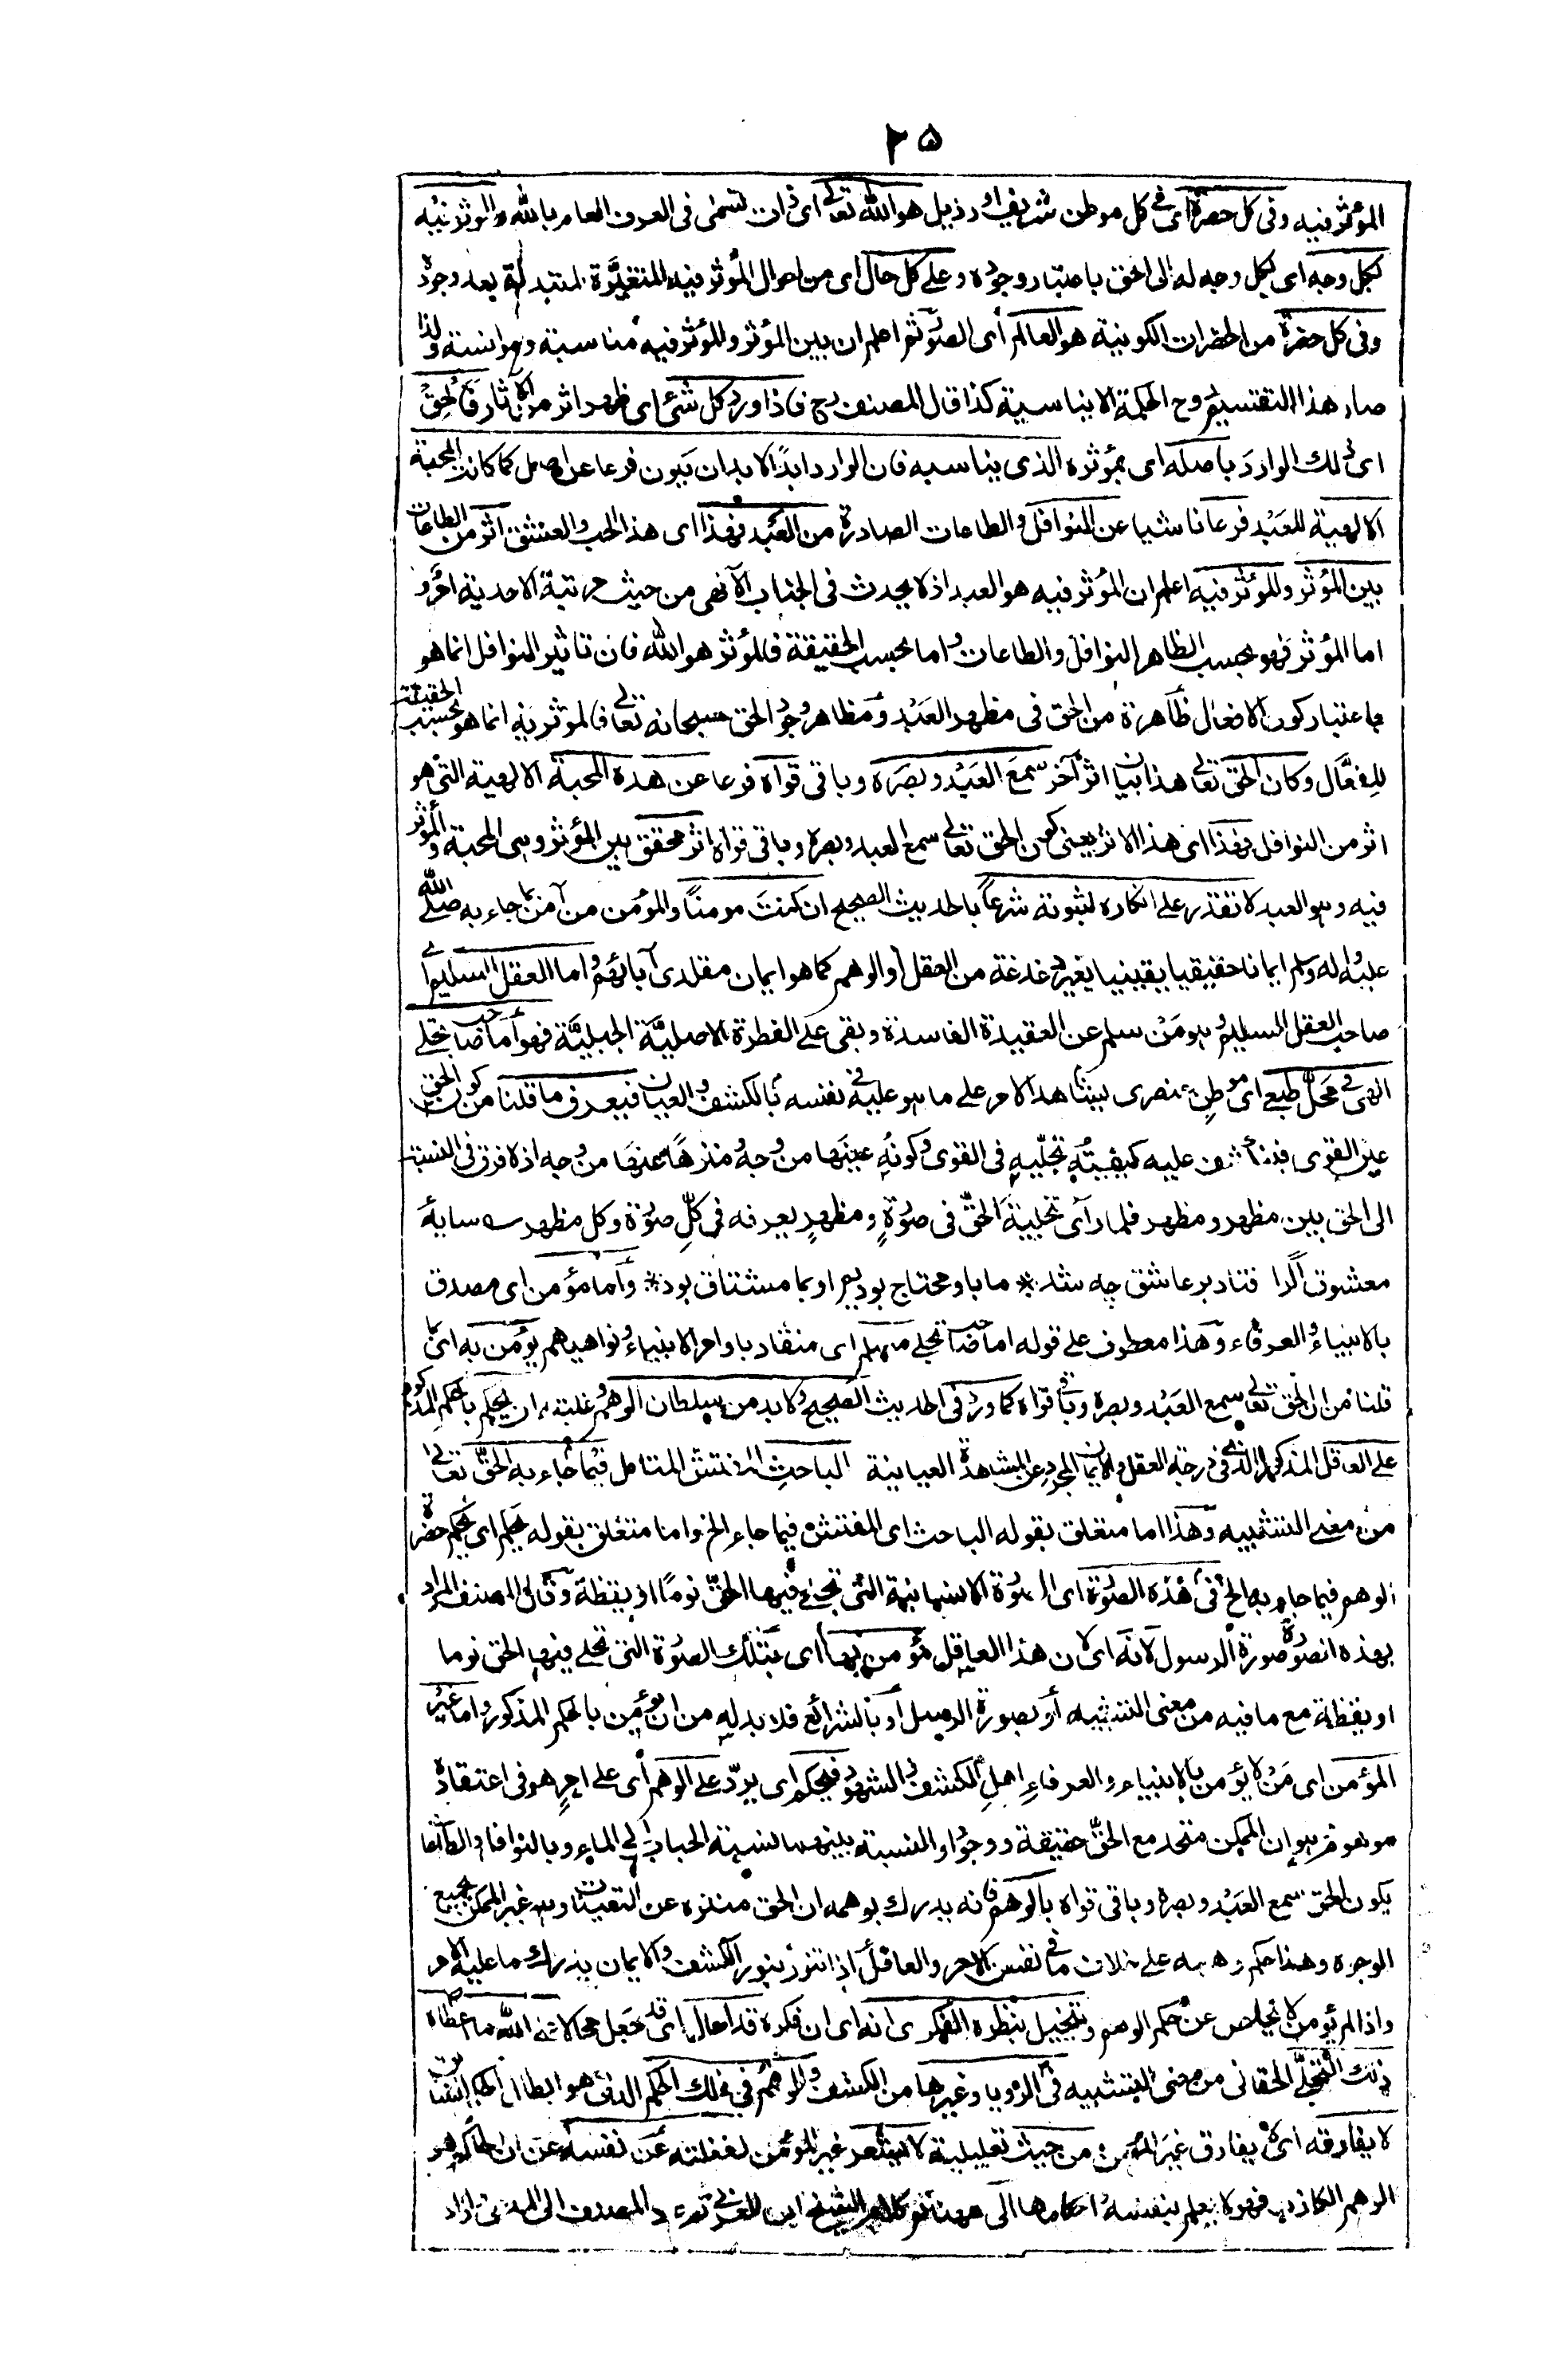 ٢٥
المؤثر فيه وفى كل حضرة اى فى كل موطن شريف او رذيل هو الله تعالى اى ذات تسمى فى العرف العام بالله والمؤثر فيه
بكل وجه اى بكل وجه له الى الحق باعتبار وجوده وعلى كل حال اى من احوال المؤثر فيه المتغيّرة المتبدلة بعد وجوده
وفى كل حضرة من الحضرات الكونية هو العالم اى الصور ثم اعلم ان بين المؤثر والمؤثر فيه مناسبة وموانسة ولذا
صار هذا التقسيم روح الحكمة الايناسية كذا قال المصنف رح فاذا ورد كل شئ اى ظهر اثر من الآثار فالحق
اى ذلك الوارد باصله اى بمؤثره الذى يناسبه فان الوارد ابدًا لا بد ان يكون فرعا عن اصل كما كانت المحبة
الالهية للعبد فرعا ناشيا عن النوافل والطاعات الصادرة من العبد فهذا اى هذا الحب والعشق اثر من الطاعات
بين المؤثر والمؤثر فيه اعلم ان المؤثر فيه هو العبد اذ لا يحدث فى الجناب الآلهى من حيث مرتبة الاحدية اثر و
اما المؤثر فهو بحسب الظاهر النوافل والطاعات واما بحسب الحقيقة فالمؤثر هو الله فان تاثير النوافل انما هو
باعتبار كون الافعال ظاهرة من الحق فى مظهر العبد ومظاهر وجود الحق سبحانه تعالى فالمؤثر فيه انما هو بحسب الحقيقة
للفعّال وكان الحق تعالى هذا بيان اثر آخر سمع العبد وبصره وباقى قواه فرعا عن هذه المحبة الالهية التى هو
اثر من النوافل فهذا اى هذا الاثر يعنى كون الحق تعالى سمع العبد وبصره وباقى قواه اثر محقق بين المؤثر وهى المحبة والمؤثر
فيه وهو العبد لا تقدر على انكاره لثبوته شرعاً بالحديث الصحيح ان كنت مومنًا والمؤمن من آمن بما جاء به صلى الله
عليه وآله وسلم ايمانا حقيقيا يقينيا بغير دغدغة من العقل او الوهم كما هو ايمان مقلدى آبائهم واما العقل السليم اى
صاحب العقل السليم وهو مَنْ سلم عن العقيدة الفاسدة وبقى على الفطرة الاصليّة الجبليّة فهو أما صاحب تجلى
الهى فى محلّ طبعى اى موطن عنصرى بيننا هذا الامر على ما هو عليه فى نفسه بالكشف والعيان فيعرف ما قلنا من كون الحق
عين القوى فينكشف عليه كيفيّة تجلّيه فى القوى وكونه عينها من وجه ومنزهًا عنها من وجه اذ لا فرق فى النسبة
الى الحق بين مظهر ومظهر فلما رآى تجلية الحقّ فى صورةٍ ومظهرٍ يعرفه فى كلّ صورة وكل مظهر سه سايهٔ
معشوق اگر افتاد بر عاشق چه شد * ما باو محتاج بوديم او بما مشتاق بود * وأما مؤمن اى مصدق
بالانبياء والعرفاء وهذا معطوف على قوله اما صاحب تجلى مسلم اى منقاد باوامر الانبياء ونواهيهم يؤمن به اى بما
قلنا من ان الحق تعالى سمع العبد وبصره وباقى قواه كما ورد فى الحديث الصحيح ولا بد من سلطان الوهم وغلبته ان يحكم بالحكم المذكور
على العاقل المذكور الذى فى درجة العقل والايمان المجرد عن المشاهدة العيانية الباحث المفتش المتامل فيما جاء به الحقّ تعالى
من معنى التشبيه وهذا اما متعلق بقوله الباحث اى المفتش فيما جاء الخ واما متعلق بقوله يحكم اى يحكم حضرة
الوهم فيما جاء به الخ فى هذه الصورة اى الصورة الانسانية التى تجلى فيها الحقّ نومًا او يقظة وقال المصنف المراد
بهذه الصورة صورة الرسول لانه اى لان هذا العاقل مؤمن بها اى بتلك الصورة التى تجلى فيها الحق نوما
او يقظة مع ما فيه من معنى التشبيه أو بصورة الرسل أو بالشرائع فلا بد له من ان يؤمن بالحكم المذكور واما غير
المؤمن اى مَنْ لا يؤمن بالانبياء والعرفاء اهلِ الكشف والشهود فيحكم اى يردّ على الوهم اى على امرٍ هو فى اعتقاده
موهوم هو ان الممكن متحد مع الحقّ حقيقة ووجودًا والنسبة بينهما نسبة الحباب الى الماء وبالنوافل والطاعات
يكون الحق سمع العبد وبصره وباقى قواه بالوهم فانه يدرك بوهمه ان الحق منزه عن التعينات وهو غير الممكن بجميع
الوجوه وهذا حكم وهمه على خلاف ما فى نفس الامر والعاقل اذا تنور بنور الكشف والايمان يدرك ما عليه الامر
واذا لم يؤمن لا يخلص عن حكم الوهم ويتخيل بنظره الفكرى انه اى ان فكره قد احال اى قد جعل محالا على الله ما اعطاه
ذلك التجلّى الحقانى من معنى التشبيه فى الرويا وغيرها من الكشف والوهم فى ذلك الحكم الذى هو ابطال
لا يفارقه اى لا يفارق غير المؤمن من حيث تعليلية لا يشعر غير المؤمن لغفلته عن نفسه عن ان الحاكم هو
الوهم الكاذب فهو لا يعلم بنفسه احكامها الى ههنا تم كلام الشيخ ابن العربى ثم